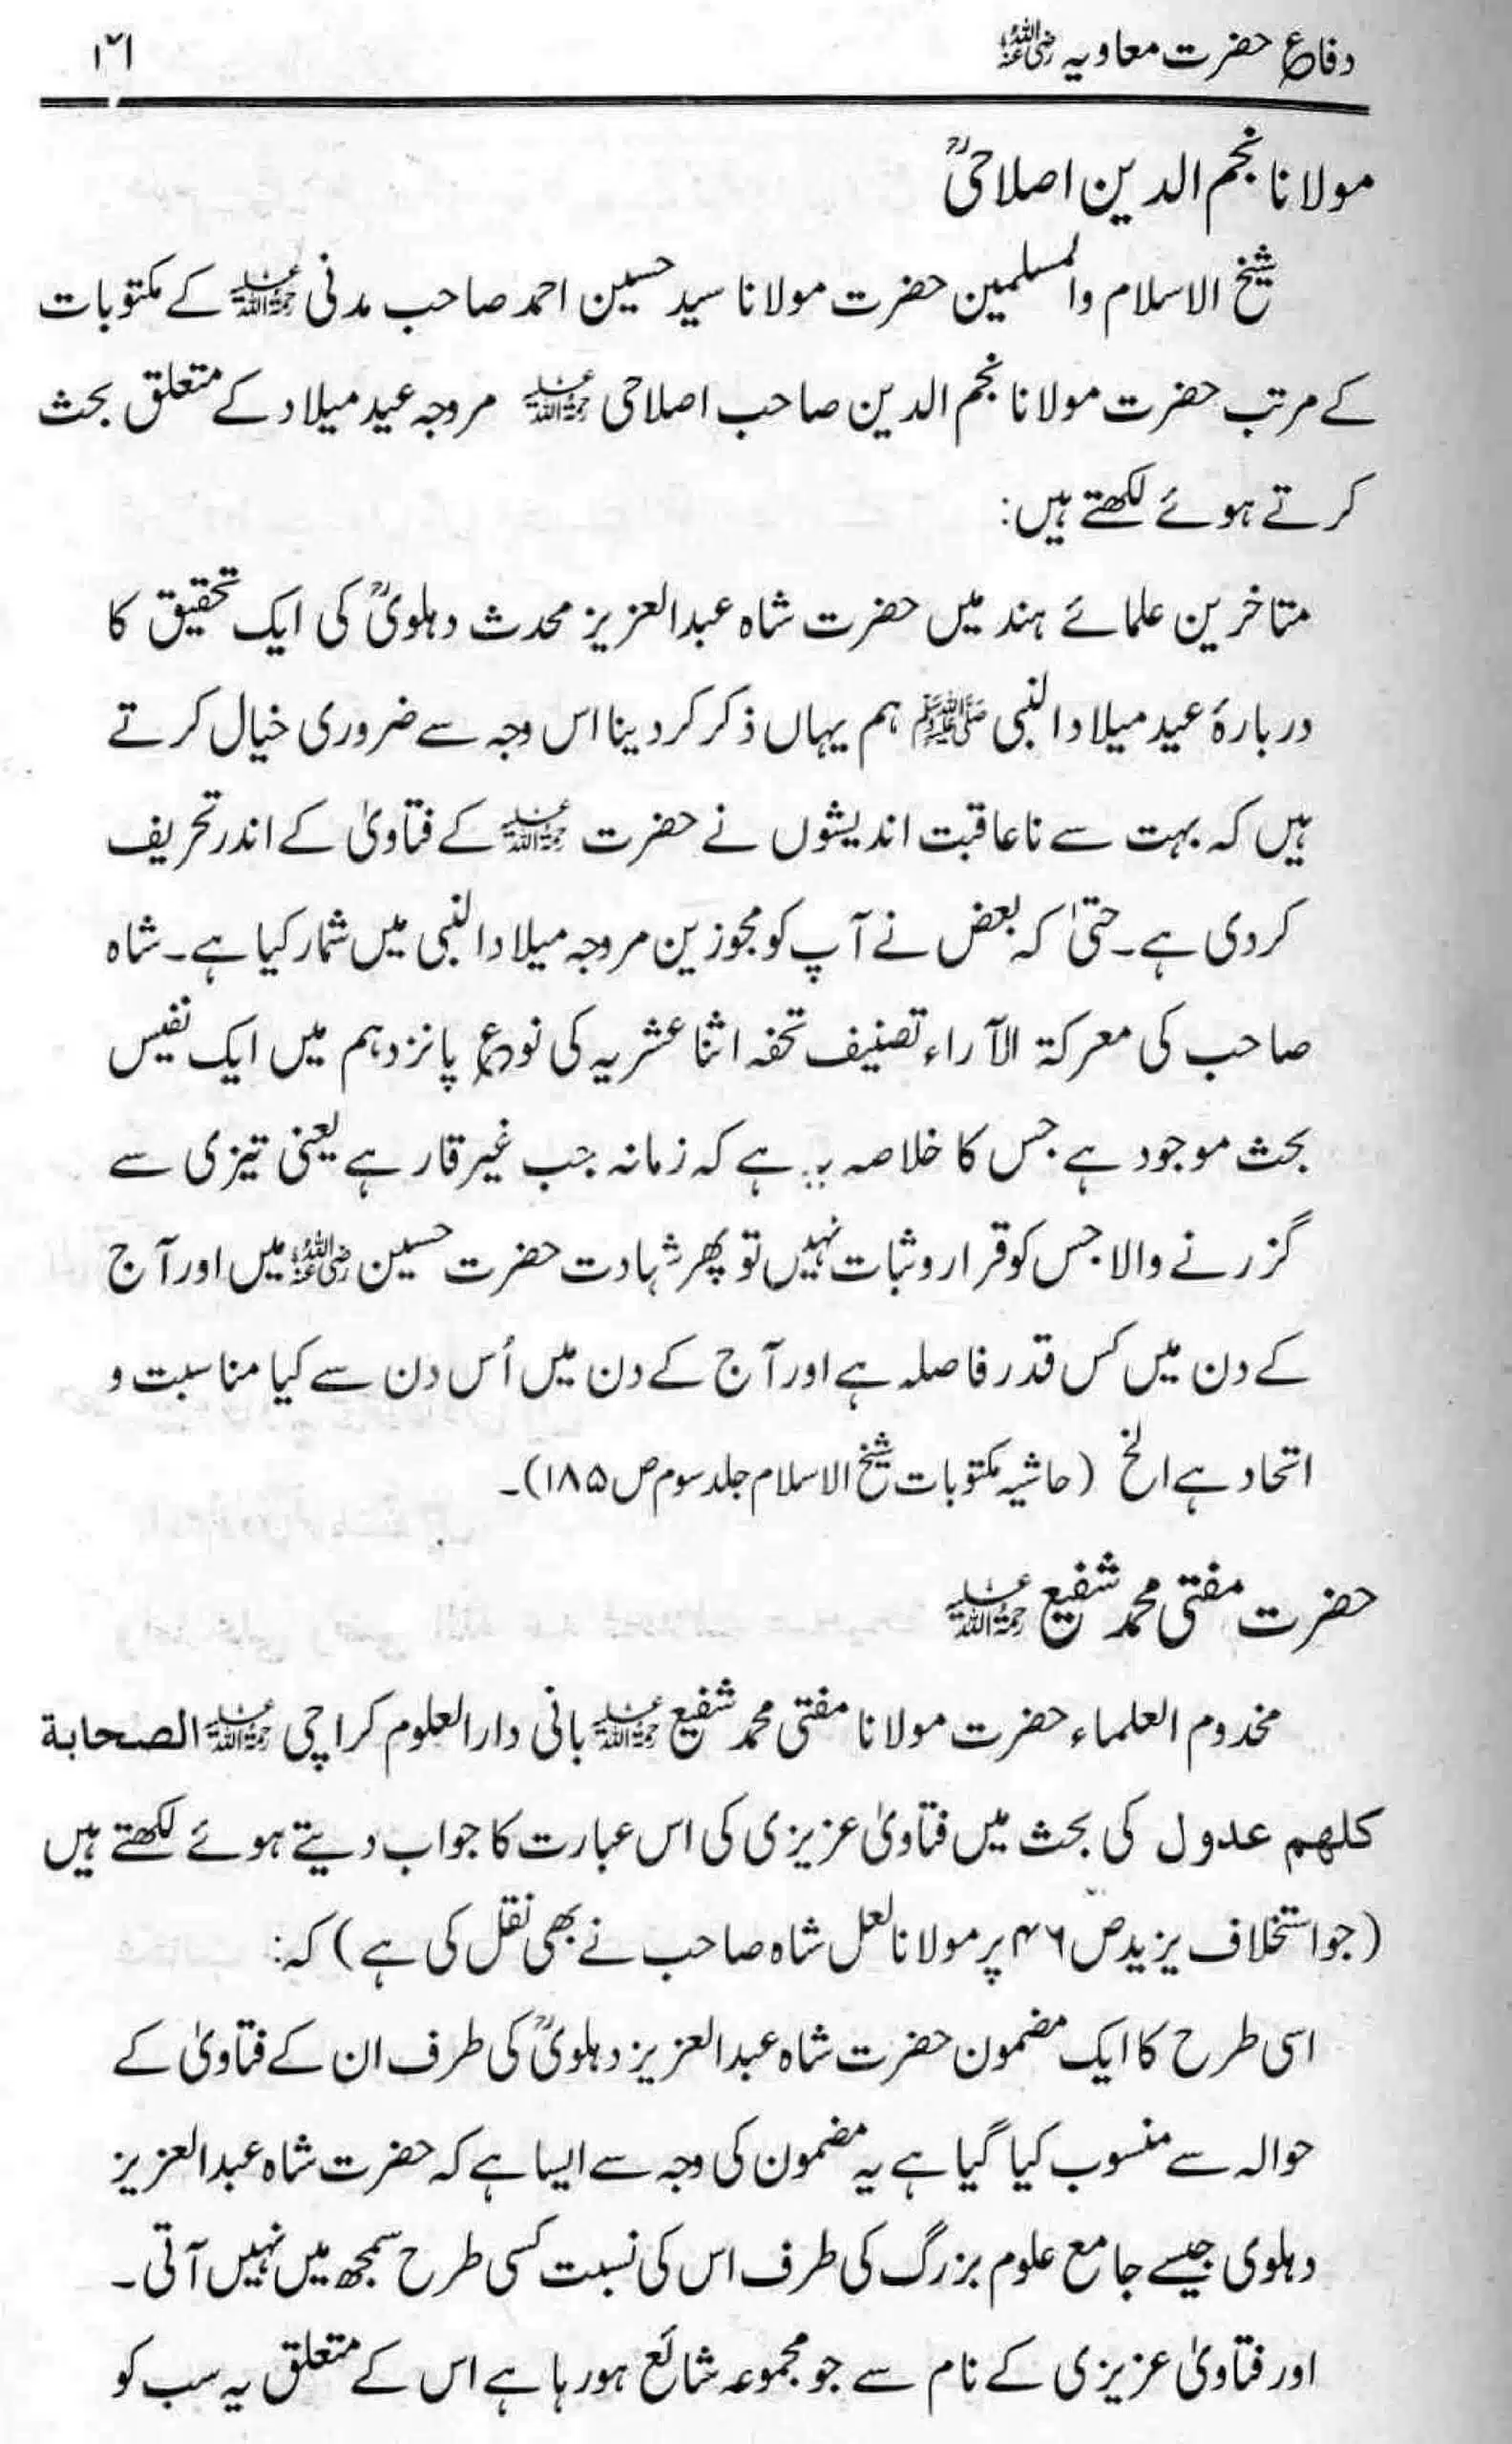 دفاع حضرت معاویہ رضی اللہ عنہ
۱۲۱
مولانا نجم الدین اصلاحیؒ
شیخ الاسلام والمسلمین حضرت مولانا سید حسین احمد صاحب مدنی رحمۃ اللہ علیہ کے مکتوبات
کے مرتب حضرت مولانا نجم الدین صاحب اصلاحی رحمۃ اللہ علیہ مروجہ عید میلاد کے متعلق بحث
کرتے ہوئے لکھتے ہیں:
متاخرین علمائے ہند میں حضرت شاہ عبدالعزیز محدث دہلویؒ کی ایک تحقیق کا
دربارۂ عید میلاد النبی ﷺ ہم یہاں ذکر کر دینا اس وجہ سے ضروری خیال کرتے
ہیں کہ بہت سے ناعاقبت اندیشوں نے حضرت رحمۃ اللہ علیہ کے فتاویٰ کے اندر تحریف
کردی ہے۔ حتیٰ کہ بعض نے آپ کو مجوزین مروجہ میلاد النبی میں شمار کیا ہے۔ شاہ
صاحب کی معرکۃ الآراء تصنیف تحفہ اثنا عشریہ کی نوع پانزدہم میں ایک نفیس
بحث موجود ہے جس کا خلاصہ یہ ہے کہ زمانہ جب غیر قار ہے یعنی تیزی سے
گزرنے والا جس کو قرار وثبات نہیں تو پھر شہادت حضرت حسین رضی اللہ عنہ میں اور آج
کے دن میں کس قدر فاصلہ ہے اور آج کے دن میں اُس دن سے کیا مناسبت و
اتحاد ہے الخ (حاشیہ مکتوبات شیخ الاسلام جلد سوم ص ۱۸۵)۔
حضرت مفتی محمد شفیع رحمۃ اللہ علیہ
مخدوم العلماء حضرت مولانا مفتی محمد شفیع رحمۃ اللہ علیہ بانی دارالعلوم کراچی رحمۃ اللہ علیہ الصحابة
كلهم عدول کی بحث میں فتاویٰ عزیزی کی اس عبارت کا جواب دیتے ہوئے لکھتے ہیں
(جو استخلاف یزید ص ۴۶ پر مولانا لعل شاہ صاحب نے بھی نقل کی ہے) کہ:
اسی طرح کا ایک مضمون حضرت شاہ عبدالعزیز دہلویؒ کی طرف ان کے فتاویٰ کے
حوالہ سے منسوب کیا گیا ہے یہ مضمون کی وجہ سے ایسا ہے کہ حضرت شاہ عبدالعزیز
دہلوی جیسے جامع علوم بزرگ کی طرف اس کی نسبت کسی طرح سمجھ میں نہیں آتی۔
اور فتاویٰ عزیزی کے نام سے جو مجموعہ شائع ہورہا ہے اس کے متعلق یہ سب کو